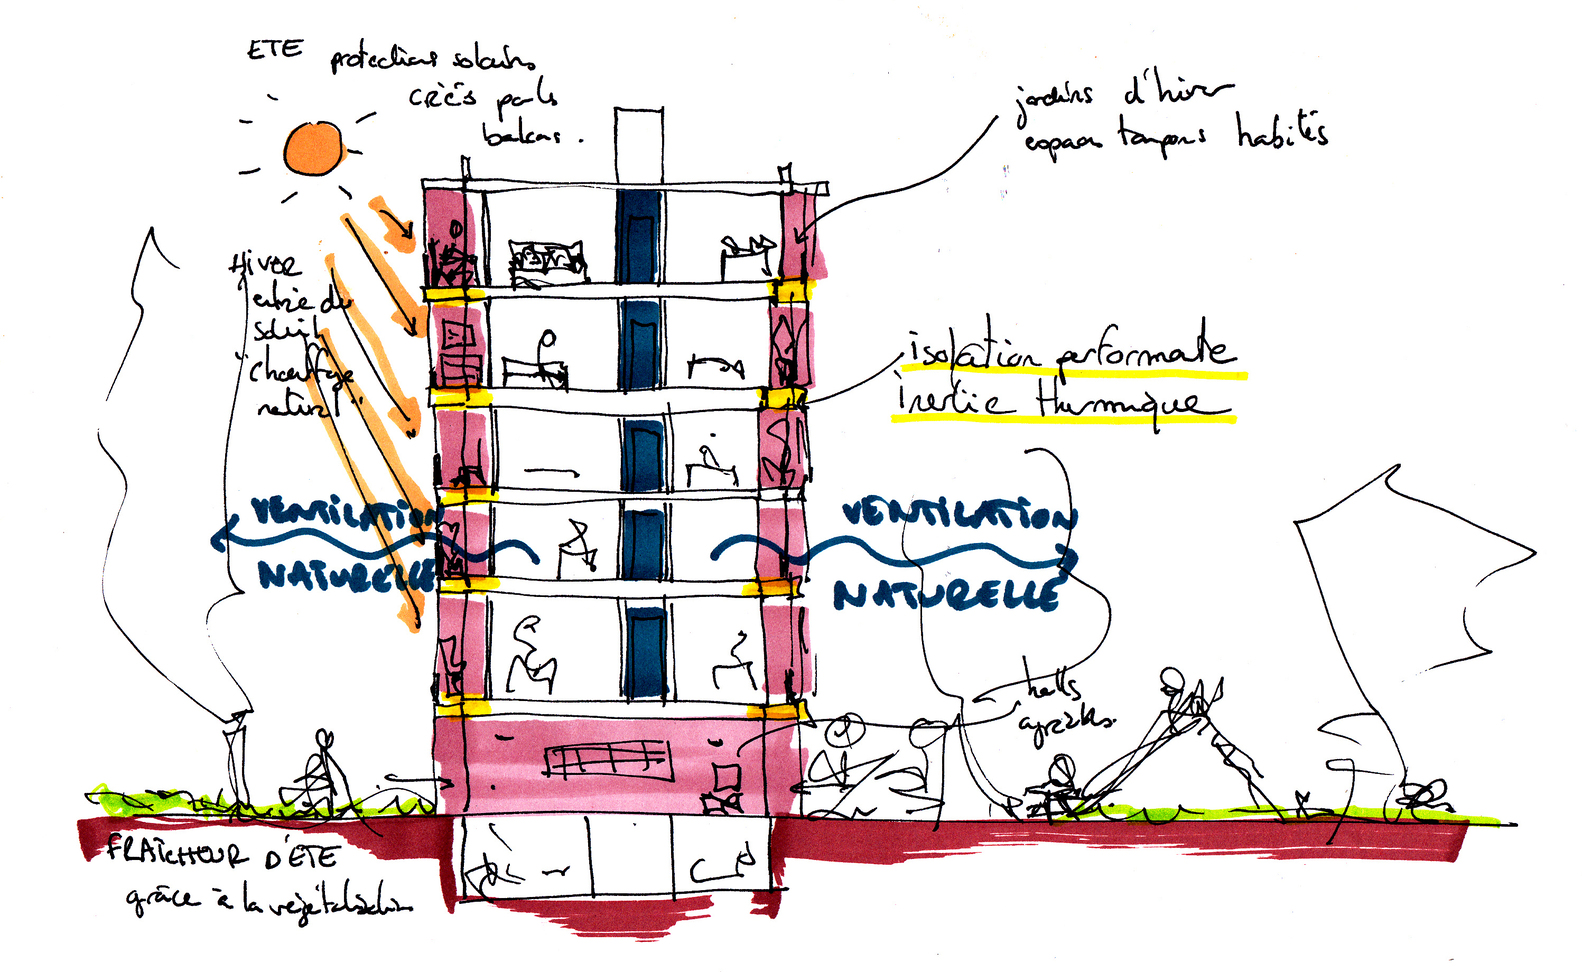 ETE
protections solaires
créés par les
balcons.
jardins d'hiver
espaces tampons habités
Hiver
entrée du
soleil
"chauffage
naturel"
isolation performante
inertie thermique
VENTILATION
NATURELLE
VENTILATION
NATURELLE
halls
agréables.
FRAÎCHEUR D'ÉTÉ
grâce à la végétalisation